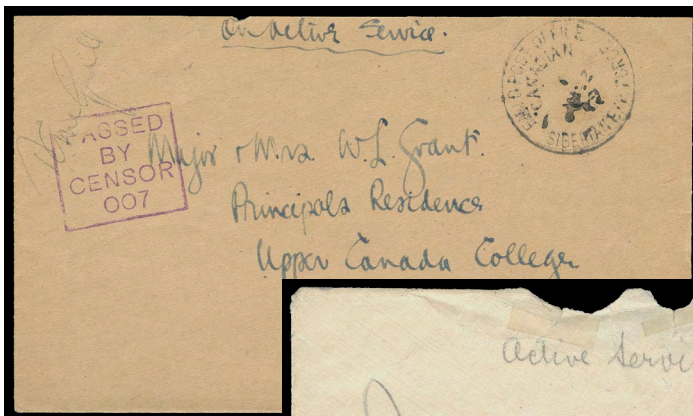 On Active Service.
FIELD POST OFFICE
CANADIAN
SIBERIAN EXP. FORCE
PASSED
BY
CENSOR
007
Major & Mrs. W L. Grant.
Principals Residence
Upper Canada College
Active Servi